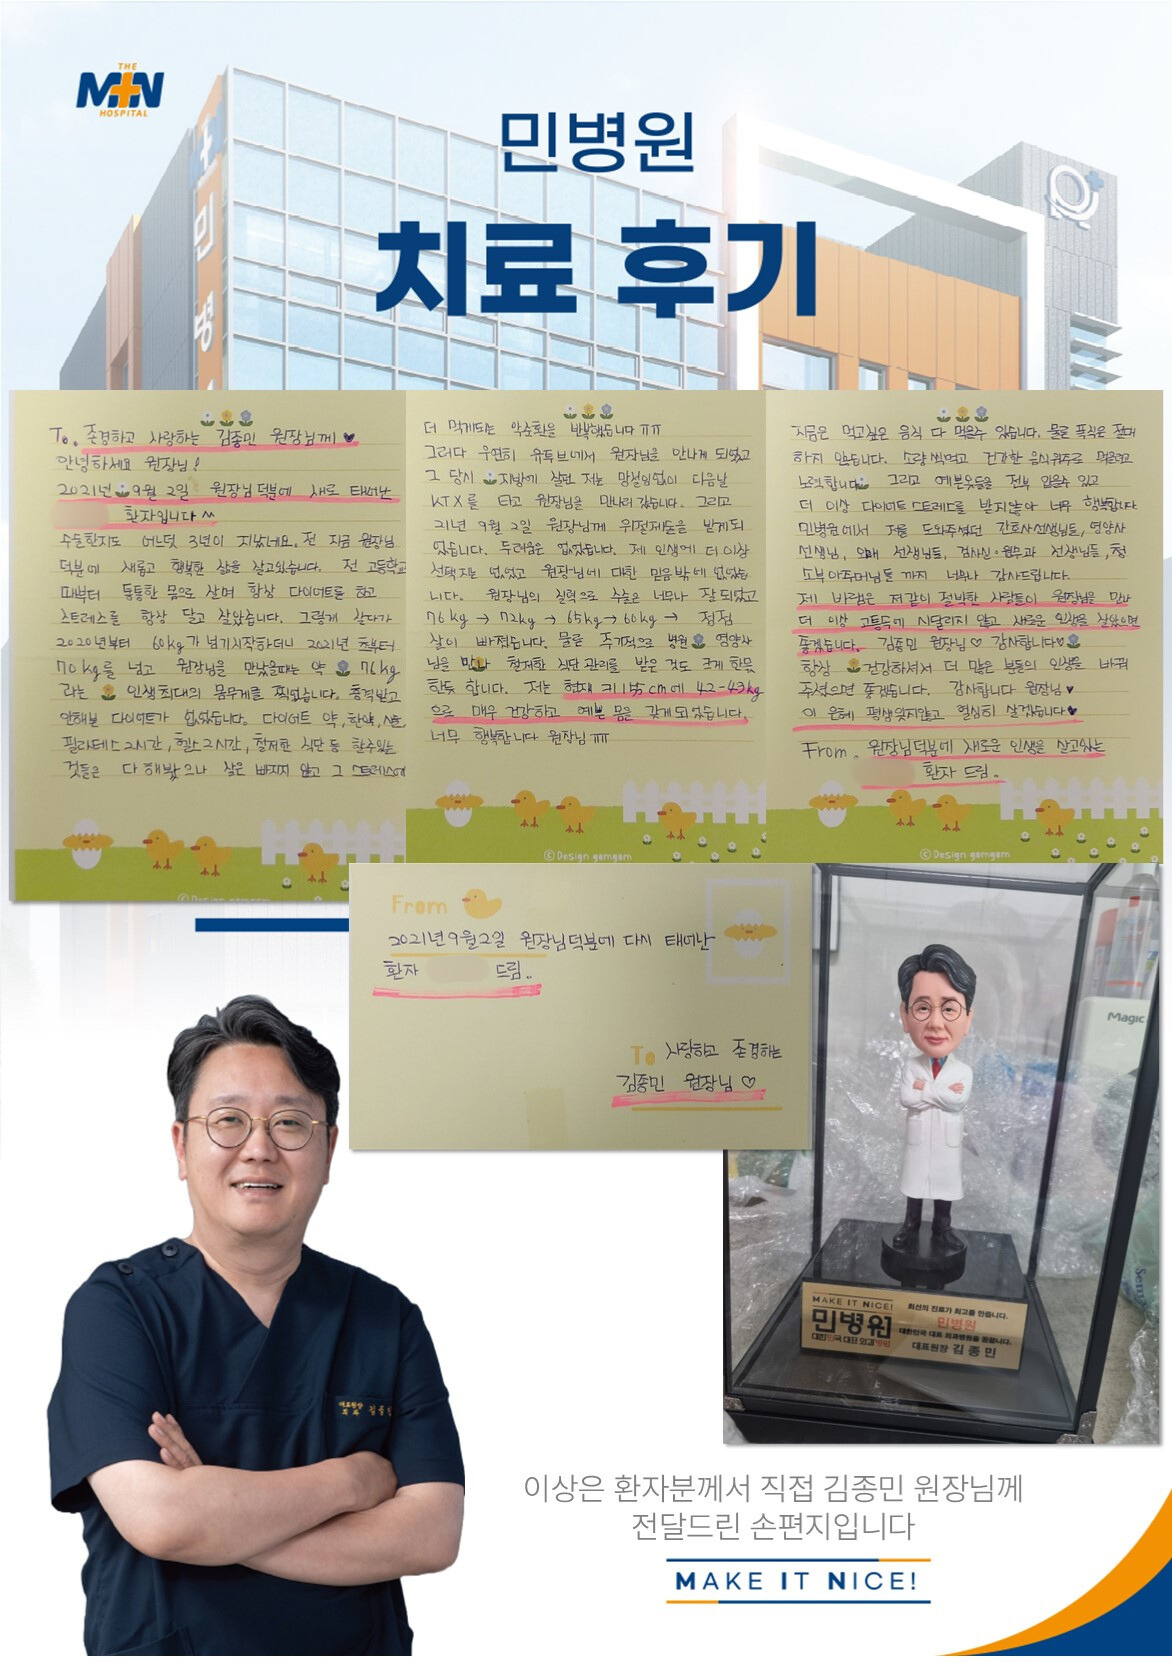 THE
MIN
HOSPITAL
민병원
치료 후기
민병
To. 존경하고 사랑하는 김종민 원장님께♥
안녕하세요 원장님!
2021년 9월 2일 원장님덕분에 새로 태어난
환자입니다^^
수술한지도 어느덧 3년이 지났네요. 전 지금 원장님
덕분에 새롭고 행복한 삶을 살고있습니다. 전 고등학교
때부터 통통한 몸으로 살며 항상 다이어트를 하고
스트레스를 항상 달고 살았습니다. 그렇게 살다가
2020년부터 60kg가 넘기시작하더니 2021년 초부터
70kg를 넘고 원장님을 만났을때는 약 76kg
라는 인생최대의 몸무게를 찍었습니다. 충격받고
안해본 다이어트가 없었습니다. 다이어트 약, 한약,
필라테스 2시간, 헬스 2시간, 철저한 식단 등 할수있는
것들은 다 해봤으나 살은 빠지지 않고 그 스트레스에
더 먹게되는 악순환을 반복했습니다 ㅠㅠ
그러다 우연히 유튜브에서 원장님을 만나게 되었고
그 당시 지방에 살던 저는 망설임없이 다음날
KTX를 타고 원장님을 만나러 갔습니다. 그리고
21년 9월 2일 원장님께 위절제술을 받게되
었습니다. 두려움은 없었습니다. 제 인생에 더이상
선택지는 없었고 원장님에 대한 믿음밖에 없었습
니다. 원장님의 실력으로 수술은 너무나 잘 되었고
76kg → 72kg → 65kg → 60kg → 점점
살이 빠졌습니다. 물론 주기적으로 병원 영양사
님을 만나 철저한 식단관리를 받은 것도 크게 한몫
한듯 합니다. 저는 현재 키 155cm에 42-43kg
으로 매우 건강하고 예쁜 몸을 갖게되었습니다.
너무 행복합니다 원장님 ㅠㅠ
ⓒ Design gomgom
지금은 먹고싶은 음식 다 먹을수 있습니다. 물론 폭식은 절대
하지 않습니다. 소량씩먹고 건강한 음식위주로 먹을려고
노력합니다 그리고 예쁜옷들을 전부 입을수 있고
더 이상 다이어트스트레스를 받지않아 너무 행복합니다
민병원에서 저를 도와주셨던 간호사선생님들, 영양사
선생님, 외래 선생님들, 검사실·원무과 선생님들, 청
소부아주머님들 까지 너무나 감사드립니다.
제 바램은 저같이 절박한 사람들이 원장님을 만나
더 이상 고통속에 시달리지 않고 새로운 인생을 살았으면
좋겠습니다. 김종민 원장님♡ 감사합니다♡
항상 건강하셔서 더 많은 분들의 인생을 바꿔
주셨으면 좋겠습니다. 감사합니다 원장님♥
이 은혜 평생잊지않고 열심히 살겠습니다♥
From. 원장님덕분에 새로운 인생을 살고있는
환자 드림.
ⓒ Design gomgom
ⓒ Design gomgom
From
2021년 9월 2일 원장님덕분에 다시 태어난
환자 드림.
To 사랑하고 존경하는
김종민 원장님♡
Magic
MAKE IT NICE!
민병원
대한민국 대표 외과병원
최선의 진료가 최고를 만듭니다.
민병원
대한민국 대표 외과병원을 꿈꿉니다.
대표원장 김 종 민
대표원장
외 과 김종민
이상은 환자분께서 직접 김종민 원장님께
전달드린 손편지입니다
MAKE IT NICE!